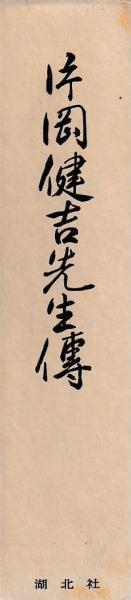 片岡健吉先生傳
湖北社